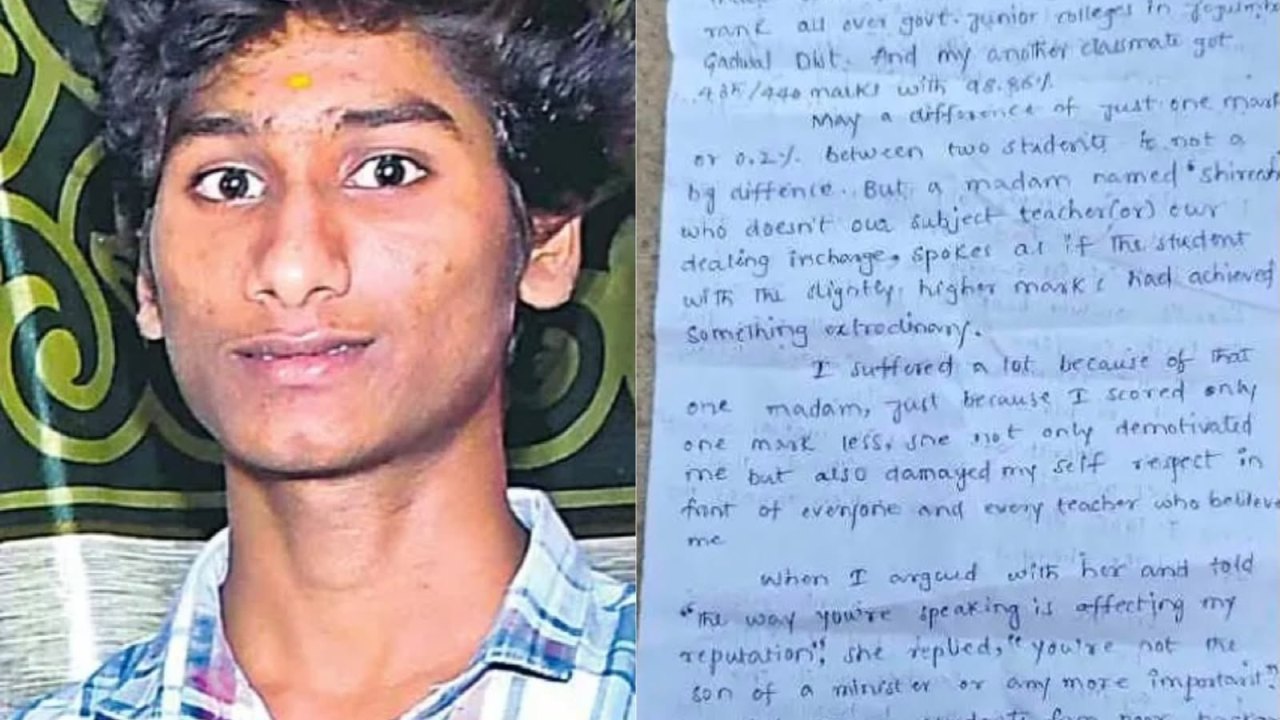 rank all over govt. junior colleges in Jogulamba
Gadwal Dist. And my another classmate got
435/440 marks with 98.86%
May a difference of just one mark
or 0.2% between two students is not a
big diffence. But a madam named "shireesh
who doesn't our subject teacher(or) our
dealing incharge, spokes as if the student
with the slightly higher marks had achieved
something extrodinary.
I suffered a lot because of that
one madam, just because I scored only
one mark less, she not only demotivated
me but also damaged my self respect in
font of everyone and every teacher who believe
me
When I argued with her and told
"The way you're speaking is affecting my
reputation", she replied, "you're not the
son of a minister or any more important"
students from poor